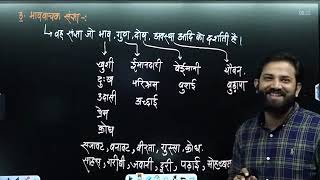 3. भाववाचक संज्ञा -:
वह संज्ञा जो भाव, गुण, दोष, अवस्था आदि को दर्शाती है।
खुशी ईमानदारी बेईमानी यौवन
दुःख परिश्रम बुराई बुढ़ापा
उदासी अच्छाई
प्रेम
क्रोध
सजावट, बनावट, वीरता, गुस्सा, क्रोध
गरीबी, जवानी, दूरी, पढ़ाई,